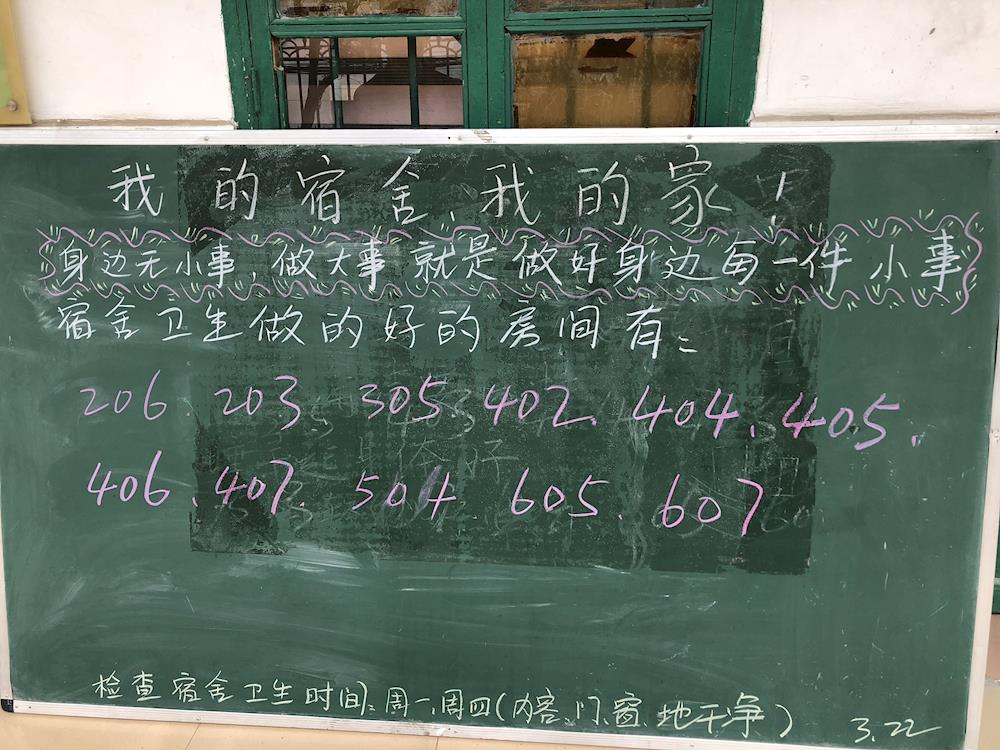 我的宿舍、我的家！
身边无小事，做大事就是做好身边每一件小事
宿舍卫生做的好的房间有：
206、203、305、402、404、405、
406、407、504、605、607
检查宿舍卫生时间：周一、周四（内容：门、窗、地干净）
3.22